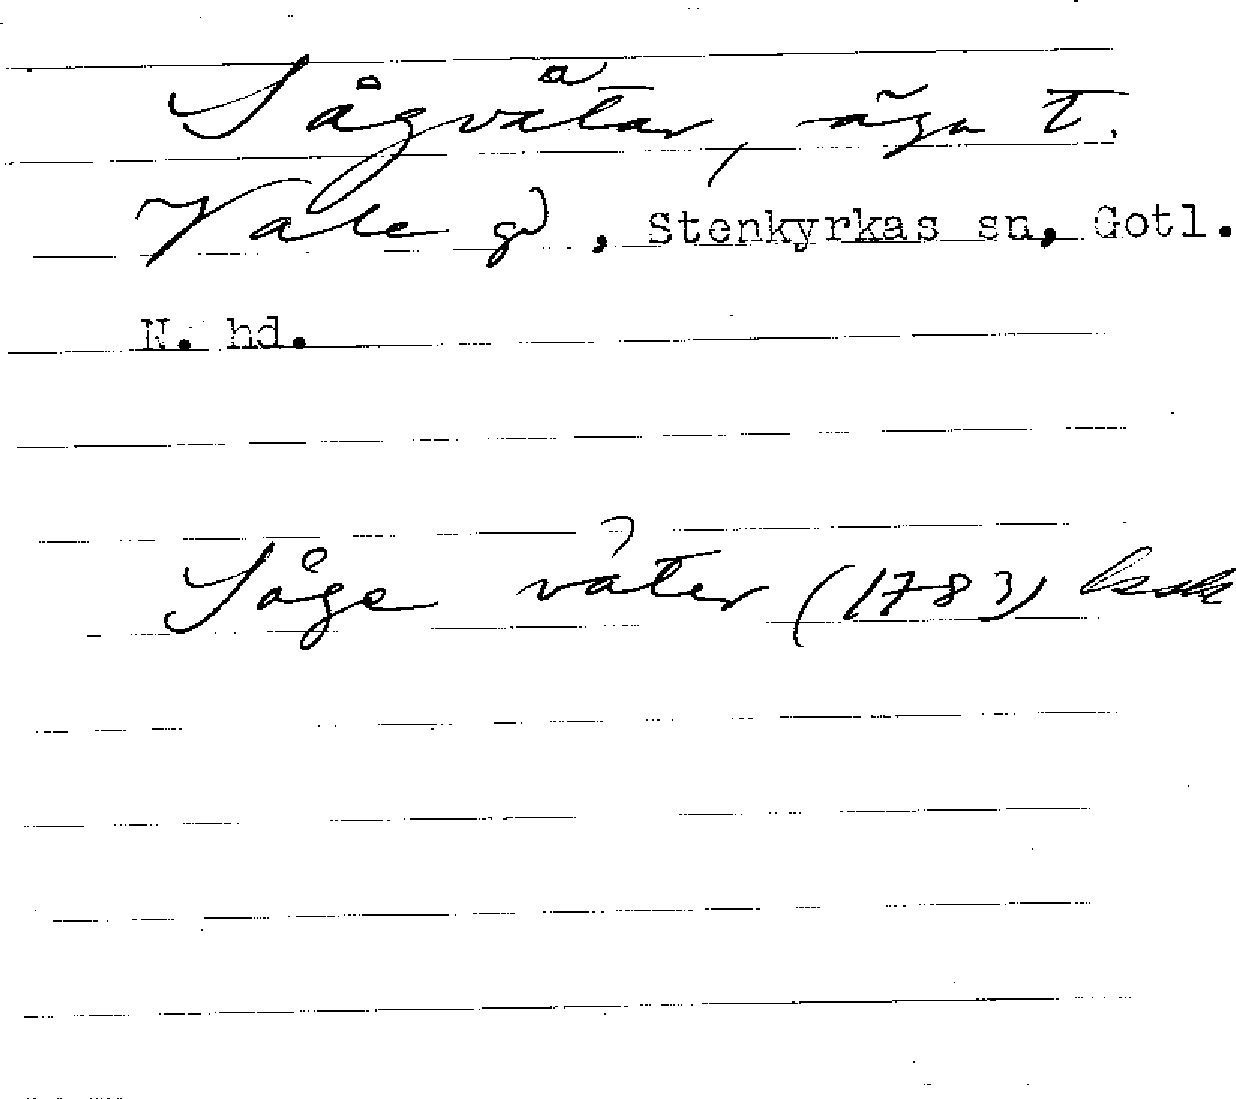 Sågvätar, äga t.
Vale gd, Stenkyrkas sn, Gotl.
N. hd.
Såge väter (1783)